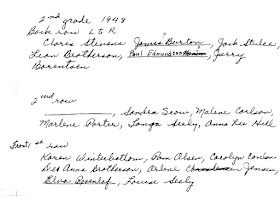 2nd grade 1948
Back row L to R
Clores Stevens James Burton, Jack Stilee,
Lean Brotherson, Paul Edmunson Jerry
Borentsen
2nd row
Sandra Scow, Malene Carlson,
Marlene Porter, Tonga Seely, Anna Lee Hill
Front 1st row
Karen Winterbottom, Pam Olsen, Carolyn Conlon
Dee Anna Brotherson, Arlene Jensen,
Elva Rosenlof, Louise Seely